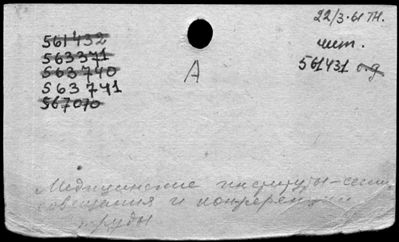 22/3-61 ТН.
561432
563371
563740
563741
567070
А
чит.
561431 о.д
Медицинские институты-сессии,
совещания и конференции
труды